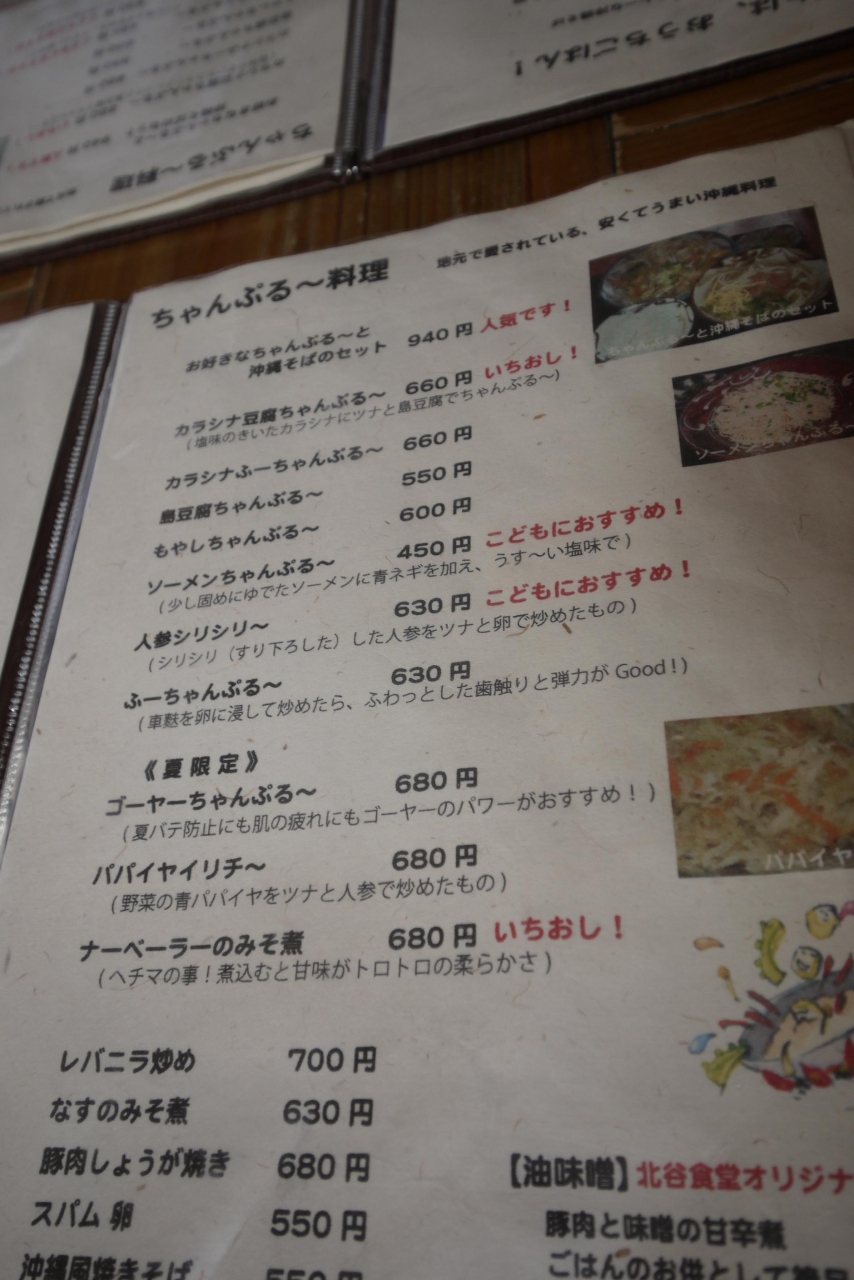 おうちごはん！
ちゃんぷる〜料理
ちゃんぷる〜料理 地元で愛されている、安くてうまい沖縄料理
お好きなちゃんぷる〜と
沖縄そばのセット 940円 人気です！
カラシナ豆腐ちゃんぷる〜 660円 いちおし！
(塩味のきいたカラシナにツナと島豆腐でちゃんぷる〜)
カラシナふーちゃんぷる〜 660円
島豆腐ちゃんぷる〜 550円
もやしちゃんぷる〜 600円
ソーメンちゃんぷる〜 450円 こどもにおすすめ！
(少し固めにゆでたソーメンに青ネギを加え、うす〜い塩味で)
人参シリシリ〜 630円 こどもにおすすめ！
(シリシリ（すり下ろした）した人参をツナと卵で炒めたもの)
ふーちゃんぷる〜 630円
(車麩を卵に浸して炒めたら、ふわっとした歯触りと弾力が Good！)
《夏限定》
ゴーヤーちゃんぷる〜 680円
(夏バテ防止にも肌の疲れにもゴーヤーのパワーがおすすめ！)
パパイヤイリチ〜 680円
(野菜の青パパイヤをツナと人参で炒めたもの)
ナーベーラーのみそ煮 680円 いちおし！
(ヘチマの事！煮込むと甘味がトロトロの柔らかさ)
レバニラ炒め 700円
なすのみそ煮 630円
豚肉しょうが焼き 680円
スパム 卵 550円
沖縄風焼きそば 550円
ちゃんぷる〜と沖縄そばのセット
ソーメンちゃんぷる〜
パパイヤ
【油味噌】北谷食堂オリジナ
豚肉と味噌の甘辛煮
ごはんのお供として